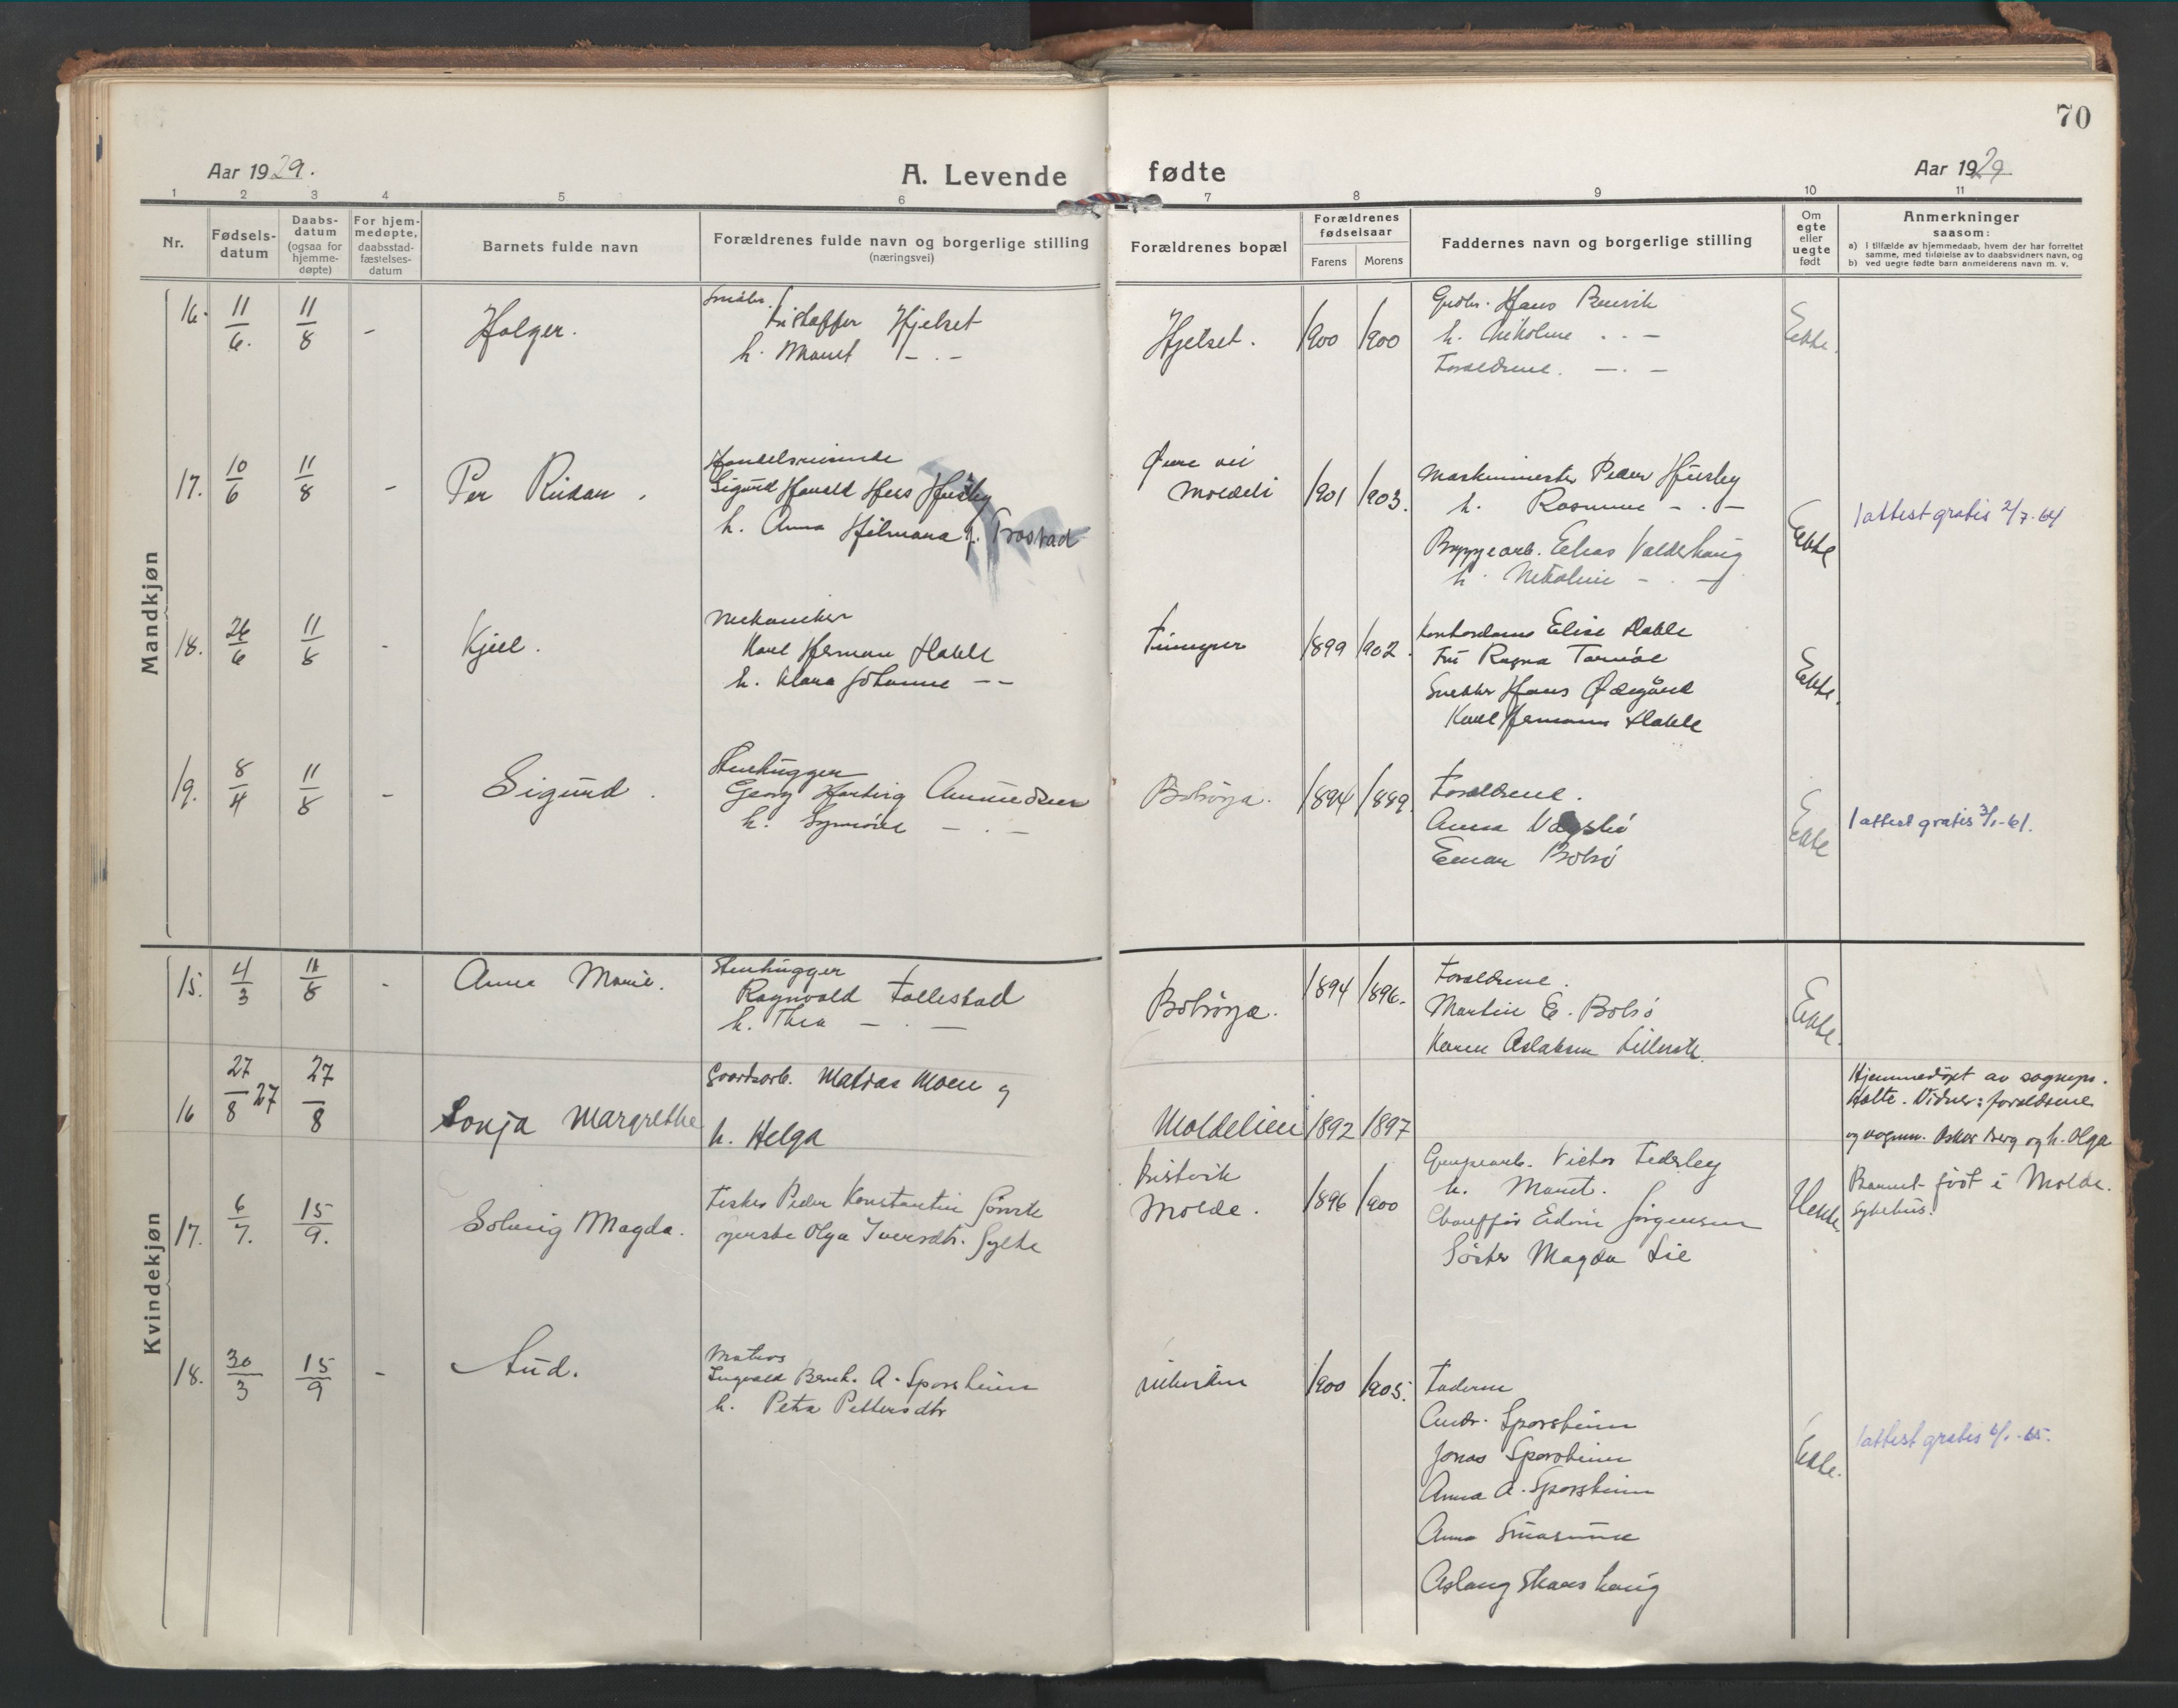 70
Aar 1929.
A. Levende fødte
Aar 1929
1 2 3 4 5 6 7 8 9 10 11
Nr.
Fødsels-
datum
Daabs-
datum
(ogsaa for
hjemme-
døpte)
For hjem-
medøpte,
daabsstad-
fæstelses-
datum
Barnets fulde navn
Forældrenes fulde navn og borgerlige stilling
(næringsvei)
Forældrenes bopæl
Forældrenes
fødselsaar
Farens Morens
Faddernes navn og borgerlige stilling
Om
egte
eller
uegte
født
Anmerkninger
saasom:
a) i tilfælde av hjemmedaab, hvem der har forrettet
samme, med tilføielse av to daabsvidners navn, og
b) ved uegte fødte barn anmelderens navn m. v.
Mandkjøn
16. 11/6. 11/8 -
Holger.
Småbr.
Kristoffer Hjelset
h. Marit - . -
Hjelset.
1900 1900
Grdbr. Hans
h. Nikoline . . -
Foreldrene. - . -
Ekte.
17. 10/6 11/8 -
Per Ridar.
Handelsreisende
Sigurd Harald Hess Husby
h. Anna Hilmara f. Trostad
Øvre vei
Moldeli
1901 1903.
Maskinmester Peder Husby
h. Rasmine - . -
Byggearb. Elias Valderhaug
h. Nikoline - . -
Ekte
1 attest gratis 2/7-64
18. 26/6 11/8 -
Kjell.
Mekaniker
Karl Herman Hakle
h. Klara Johanne - -
1899 1902.
Kontordame Elise Hakle
Fru Ragna Tarnøe
Snekker Hans Ødegård
Karl Hermann Hakle
Ekte.
19. 8/4 11/8 -
Sigurd.
Stenhugger
Georg Hartvig Amundsen
h. Synnöve - . -
Bolsöya.
1894 1899.
Foreldrene.
Anna Vågsbö
Einar Bolsö
Ekte
1 attest gratis 3/1-61.
Kvindekjøn
15. 4/3 11/8 -
Anna Marie.
Stenhugger
Ragnvald Follestad
h. Thea - . -
Bolsöya.
1894 1896.
Foreldrene.
Martin E. Bolsö
Karen Aslaksen
Ekte.
16 27/8 27 27/8
Sonja Margrethe
Gaardsarb. Matias Moen og
h. Helga
Moldelien
1892 1897
Hjemmedöpt av sognepr.
Kolte. Vidner: foreldrene
og vognm. Oskar Berg og h. Olga
17. 6/7. 15/9.
Solveig Magda.
Fisker Peder Konstantin
Olga Iversdtr. Sylte
Kristvik
Molde.
1896 1900
Victor Federley
h. Marit.
Chauffør Edvin Jörgensen
Söster Magda Lie
Uekte.
Barnet födt i Molde
Sykehus.
18. 30/3 15/9 -
Aud.
Matros
Ingvald Bernh. A. Sporsheim
h. Petra Pettersdtr
1900 1905.
Faderen
Andr. Sporsheim
Jonas Sporsheim
Anna A. Sporsheim
Anna
Aslaug Skarshaug
Ekte.
1 attest gratis 6/1-65.